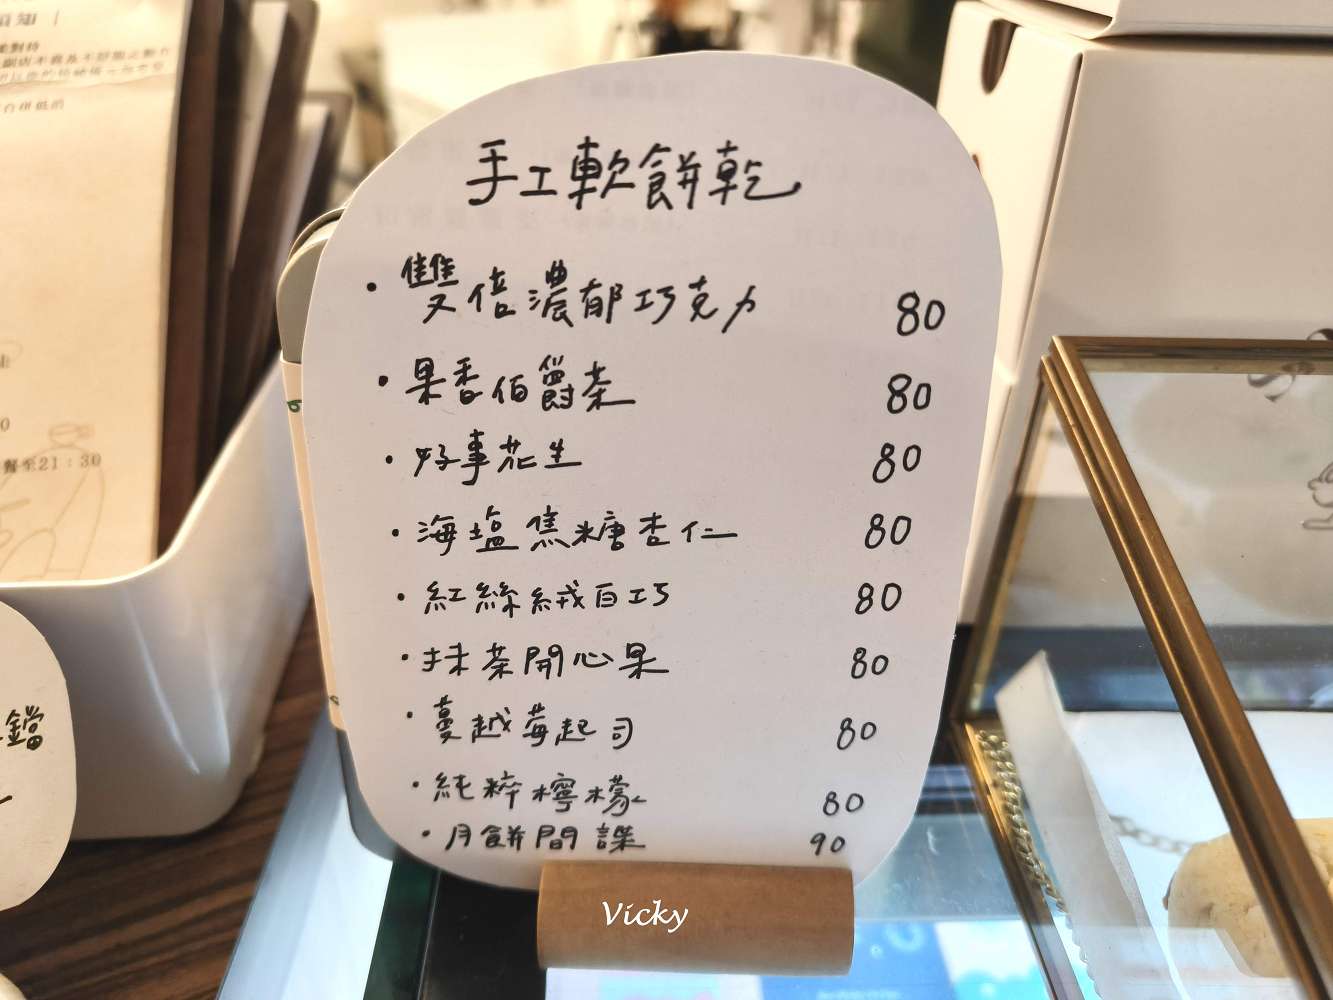 手工軟餅乾
・雙倍濃郁巧克力 80
・果香伯爵茶 80
・好事花生 80
・海塩焦糖杏仁 80
・紅絲絨白巧 80
・抹茶開心果 80
・蔓越莓起司 80
・純粹檸檬 80
・月餅間諜 90
Vicky
餐至21：30
鐺